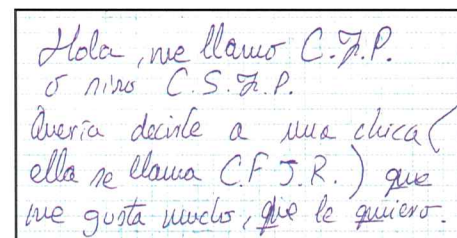 Hola, me llamo C.Z.P.
o niño C.S.Z.P.
Quería decirle a una chica (
ella se llama C.F J.R.) que
me gusta mucho, que le quiero.